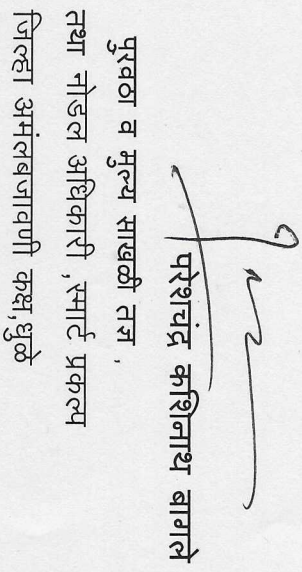 परेशचंद्र कशिनाथ बागले
पुरवठा व मुल्य साखळी तज्ञ ,
तथा नोडल अधिकारी ,स्मार्ट प्रकल्प
जिल्हा अमंलबजावणी कक्ष,धुळे